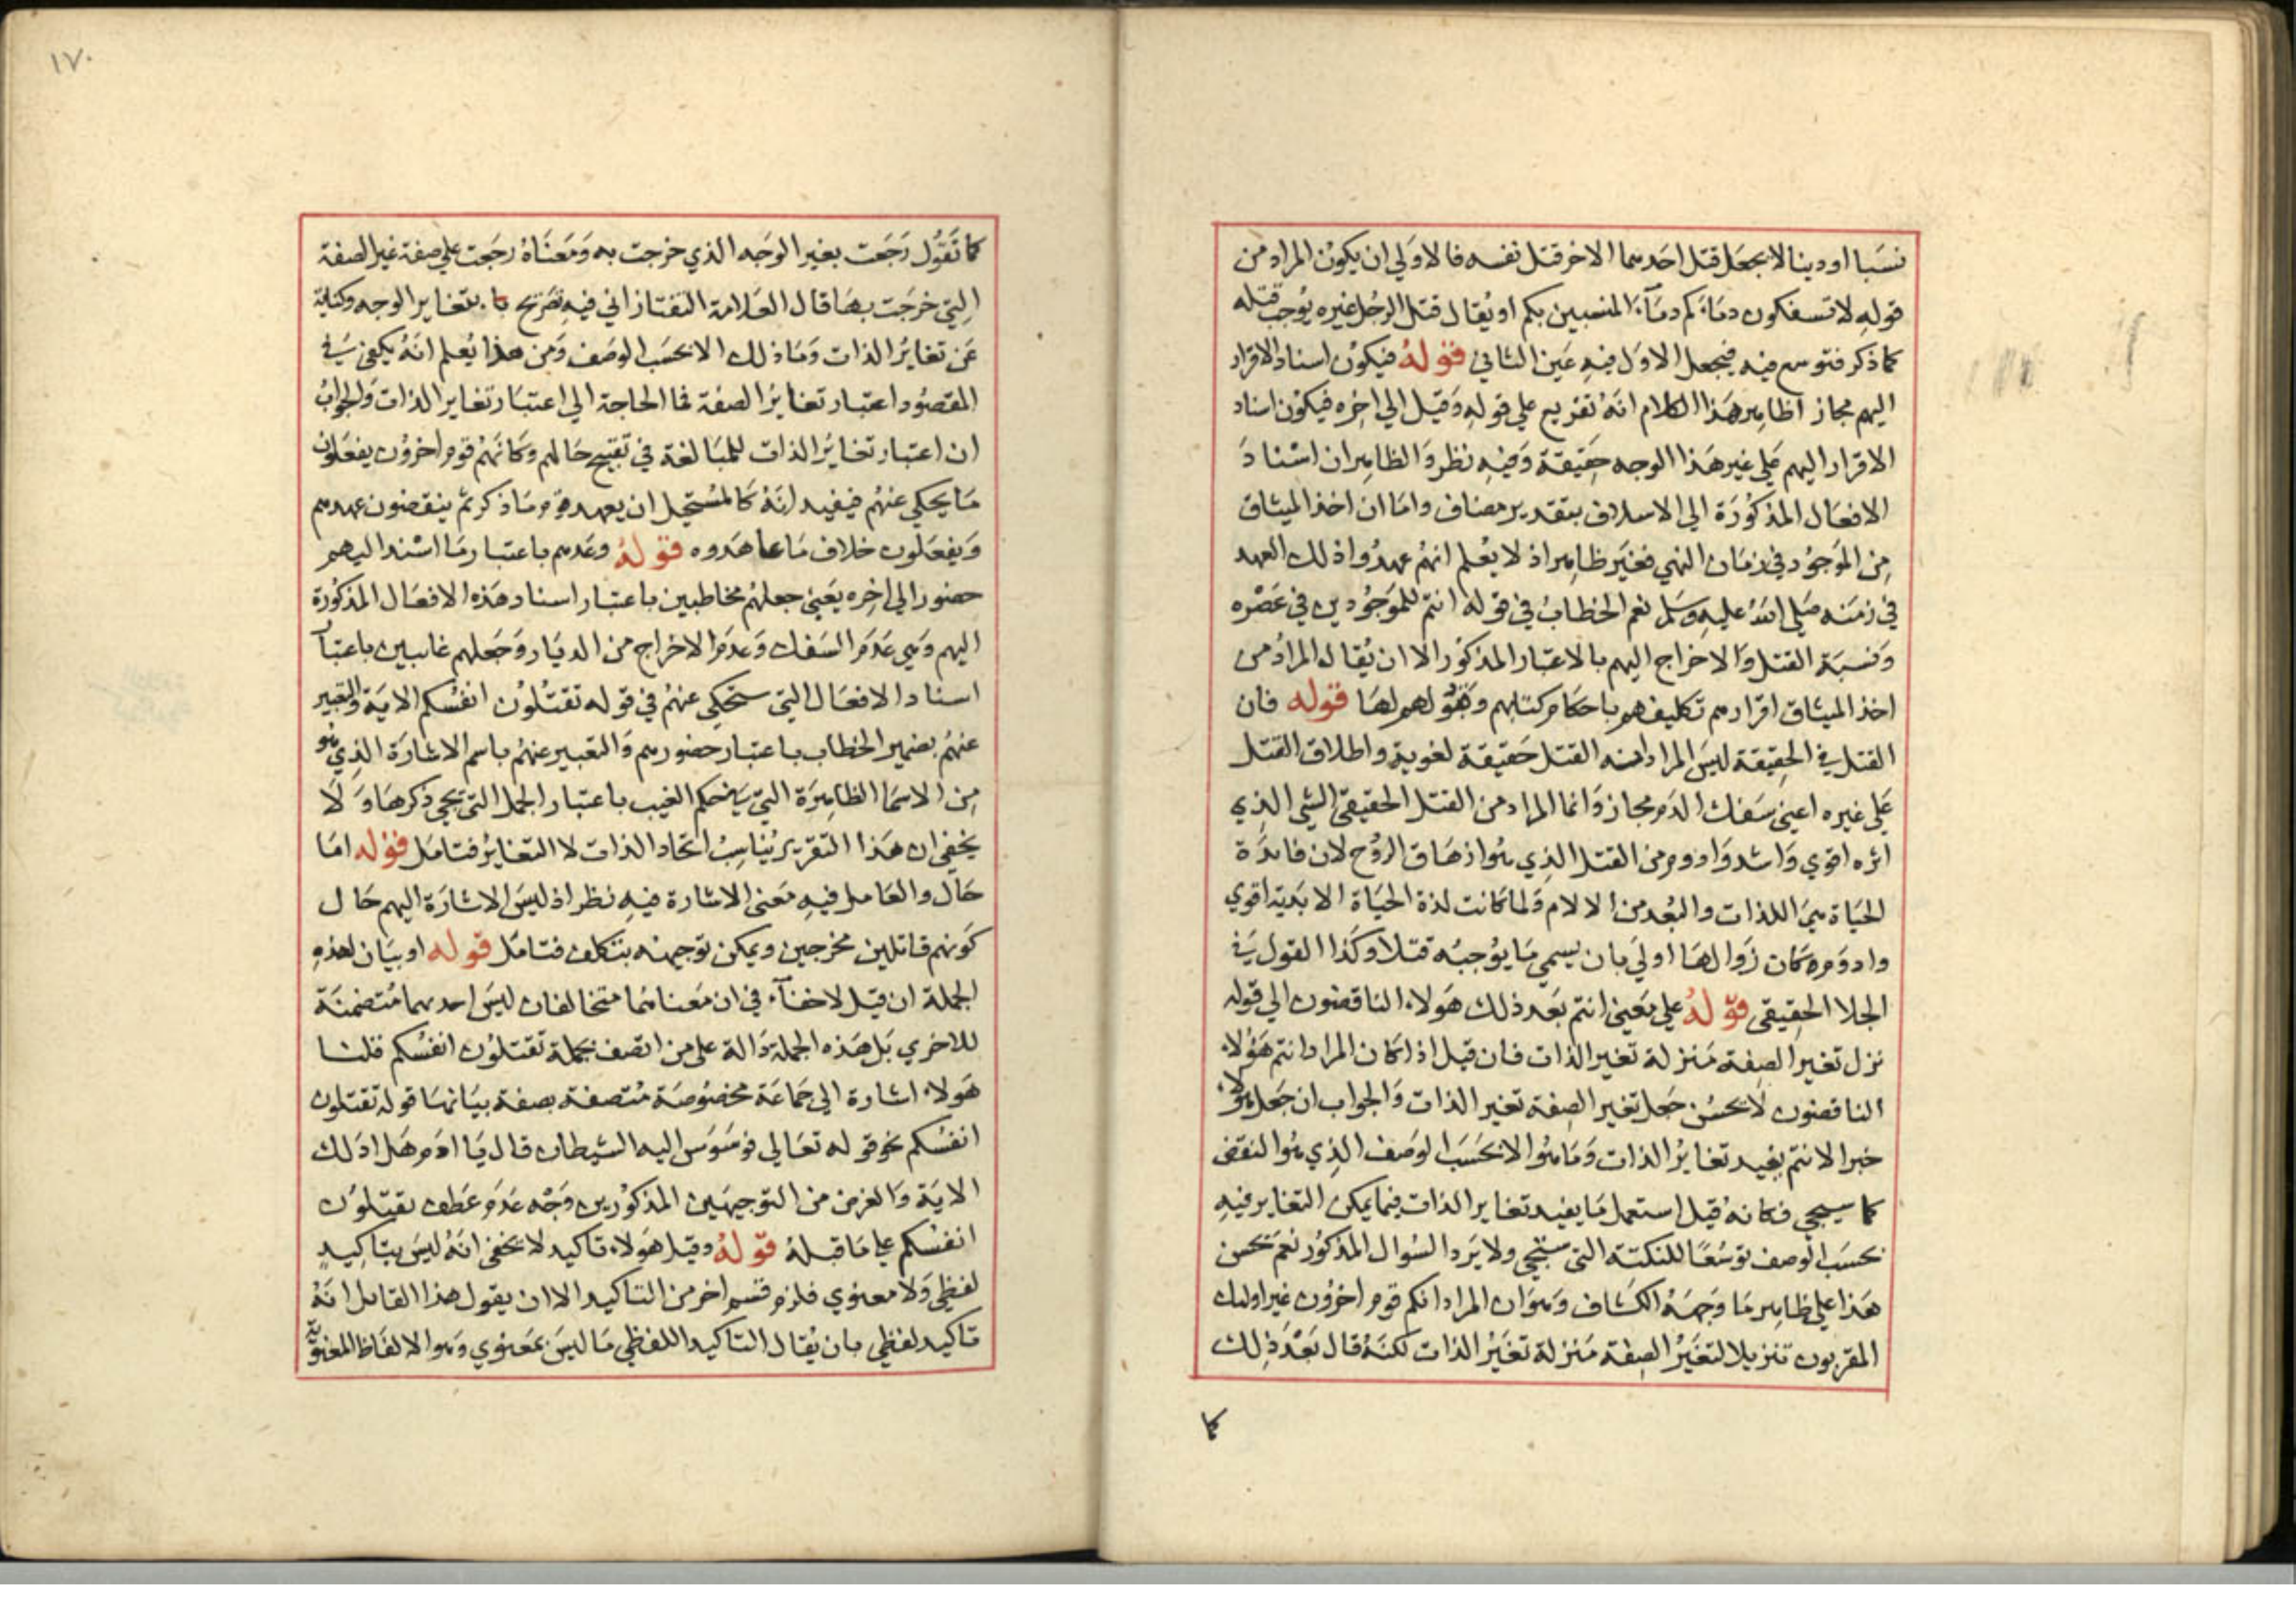 نسبا او دينا لا بجعل قتل احدهما الاخر قتل نفسه فالاولي ان يكون المراد من
قوله لا تسفكون دماءكم دماء المنسبين بكم او يقال قتل الرجل غيره يوجب قتله
كما ذكر فتوسع فيه فيجعل الاول فيه عين الثاني قوله فيكون اسناد الاقرار
اليهم مجاز اظاهر هذا الكلام انه تفريع علي قوله وقيل الي اخره فيكون اسناد
الاقرار اليهم علي غير هذا الوجه حقيقة وفيه نظر والظاهر ان اسناد
الافعال المذكورة الي الاسلاف بتقدير مضاف واما ان اخذ الميثاق
من الموجود في زمان النهي فغير ظاهر اذ لا يعلم انهم عهدوا ذلك العهد
في زمنه صلي الله عليه وسلم نعم الخطاب في قوله انتم للموجودين في عصره
ونسبة القتل والاخراج اليهم بالاعتبار المذكور الا ان يقال المراد من
اخذ الميثاق اقرارهم تكليفهم باحكام كتابهم وقبولهم لها قوله فان
القتل في الحقيقة ليس المراد منه القتل حقيقة لغوية واطلاق القتل
علي غيره اعني سفك الدم مجاز وانما المراد من القتل الحقيقي الشي الذي
اثره اقوي واشد وادوم من القتل الذي هو اذهاق الروح لان فائدة
الحياة هي اللذات والبعد من الالام ولما كانت لذة الحياة الابدية اقوي
وادومه كان زوالها اولي بان يسمي ما يوجبه قتلا وكذا القول في
الجلا الحقيقي قوله علي يعني انتم بعد ذلك هولاء الناقضون الي قوله
نزل تغير الصفة منزلة تغير الذات فان قيل اذا كان المراد انتم هولاء
الناقضون لا يحسن جعل تغير الصفة تغير الذات والجواب ان جعل هولاء
خبرا لانتم يفيد تغاير الذات وما هو الا بحسب الوصف الذي هو النقض
كما سيجي فكانه قيل استعمل ما يفيد تغاير الذات فيما يمكن التغاير فيه
بحسب الوصف توسعا للنكتة التي ستجي ولا يرد السوال المذكور نعم يحسن
هذا علي ظاهر ما وجهه الكشاف وهو ان المراد انكم قوم اخرون غير اوليك
المقربون تنزيلا لتغير الصفة منزلة تغير الذات لكنه قال بعد ذلك
كما
١٧٠
كما تقول رجعت بغير الوجه الذي خرجت به ومعناه رجعت علي صفة غير الصفة
التي خرجت بها قال العلامة التفتازاني فيه تصريح بتغاير الوجه وكناية
عن تغاير الذات وما ذلك الا بحسب الوصف ومن هذا يعلم انه يكفي في
المقصود اعتبار تغاير الصفة فما الحاجة الي اعتبار تغاير الذات والجواب
ان اعتبار تغاير الذات للمبالغة في تقبيح حالهم وكانهم قوم اخرون يفعلون
ما يحكي عنهم فيفيد انه كالمستحيل ان يعهد قوم ما ذكر ثم ينقضون عهدهم
ويفعلون خلاف ما عاهدوه قوله وعدهم باعتبار ما اسند اليهم
حضورا الي اخره يعني جعلهم مخاطبين باعتبار اسناد هذه الافعال المذكورة
اليهم وهي عدم السفك وعدم الاخراج من الديار وجعلهم غايبين باعتبار
اسناد الافعال التي ستحكي عنهم في قوله تقتلون انفسكم الاية والتعبير
عنهم بضمير الخطاب باعتبار حضورهم والتعبير عنهم باسم الاشارة الذي هو
من الاسما الظاهرة التي هي في حكم الغيب باعتبار الجمل التي يجي ذكرها ولا
يخفي ان هذا التقرير يناسب اتحاد الذات لا التغاير فتامل قوله اما
حال والعامل فيه معني الاشارة فيه نظر اذ ليس الاشارة اليهم حال
كونهم قاتلين مخرجين ويمكن توجيهه بتكلف فتامل قوله او بيان لهذه
الجملة ان قيل لا خفاء في ان معناهما متخالفان ليس احدهما متضمنة
للاخري بل هذه الجملة دالة علي من اتصف بجملة تقتلون انفسكم قلنا
هولاء اشارة الي جماعة مخصوصة متصفة بصفة بيانها قوله تقتلون
انفسكم نحو قوله تعالي فوسوس اليه الشيطان قال يا ادم هل ادلك
الاية والغرض من التوجيهين المذكورين وجه عدم عطف تقتلون
انفسكم علي ما قبله قوله وقيل هولاء تاكيد لا يخفي انه ليس بتاكيد
لفظي ولا معنوي فلزم قسم اخر من التاكيد الا ان يقول هذا القايل انه
تاكيد لفظي بان يقال التاكيد اللفظي ما ليس بمعنوي وهو الالفاظ المعنوية